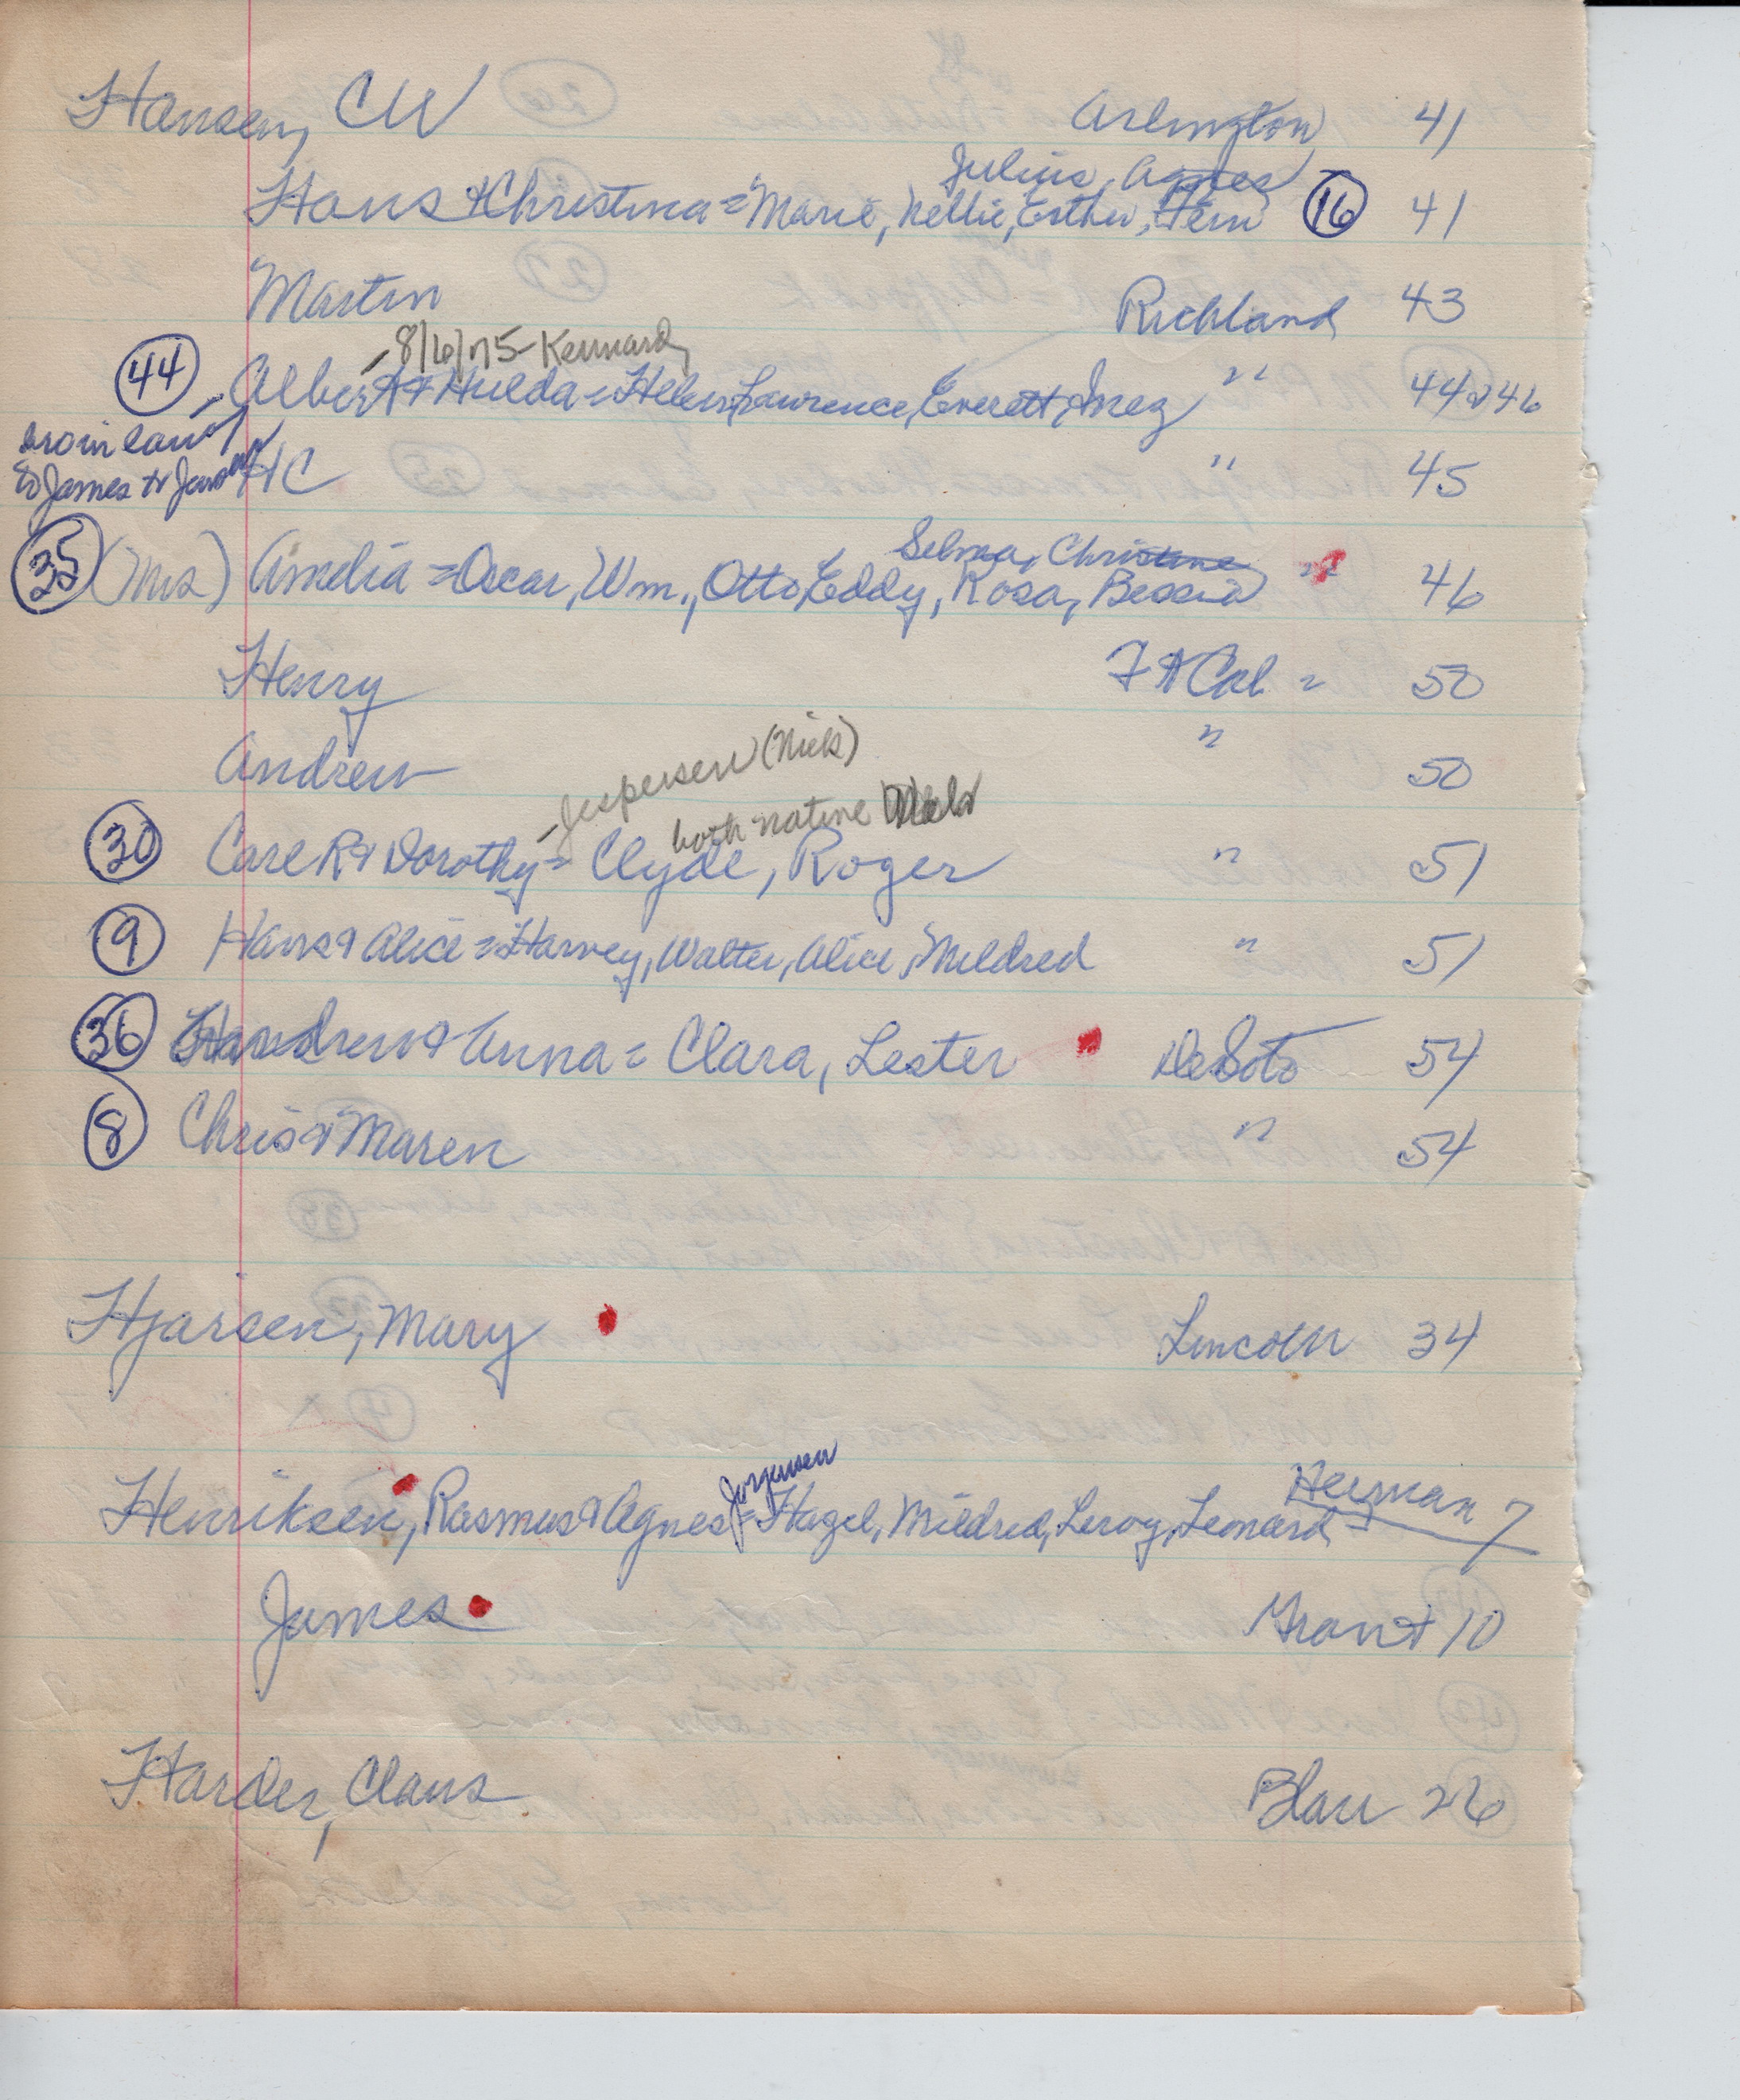 Hansen, CW Arlington 41
Julius, Agnes
Hans & Christina = Marie, Nellie, Esther, Fern 16 41
Martin Richland 43
- 8/6/75 - Kennard
44 Albert & Hulda = Helen, Lawrence, Everett, Inez " 44 & 46
bro in law
to James H Jensen HC " 45
Selma, Christine
35 (Mrs) Amelia = Oscar, Wm., Otto, Eddy, Rosa, Bessie " 46
Henry Ft Cal = 50
Andrew " 50
- Jespersen (Nick)
both native Nebr
30 Carl R & Dorothy = Clyde, Roger " 51
9 Hans & Alice = Harvey, Walter, Alice, Mildred " 51
36 Andrew & Anna = Clara, Lester DeSoto 54
8 Chris & Maren " 54
Hjarsen, Mary Lincoln 34
Jorgensen
Henriksen, Rasmus & Agnes = Hazel, Mildred, Leroy, Leonard Herman 7
James Grant 10
Harder, Claus Blair 26